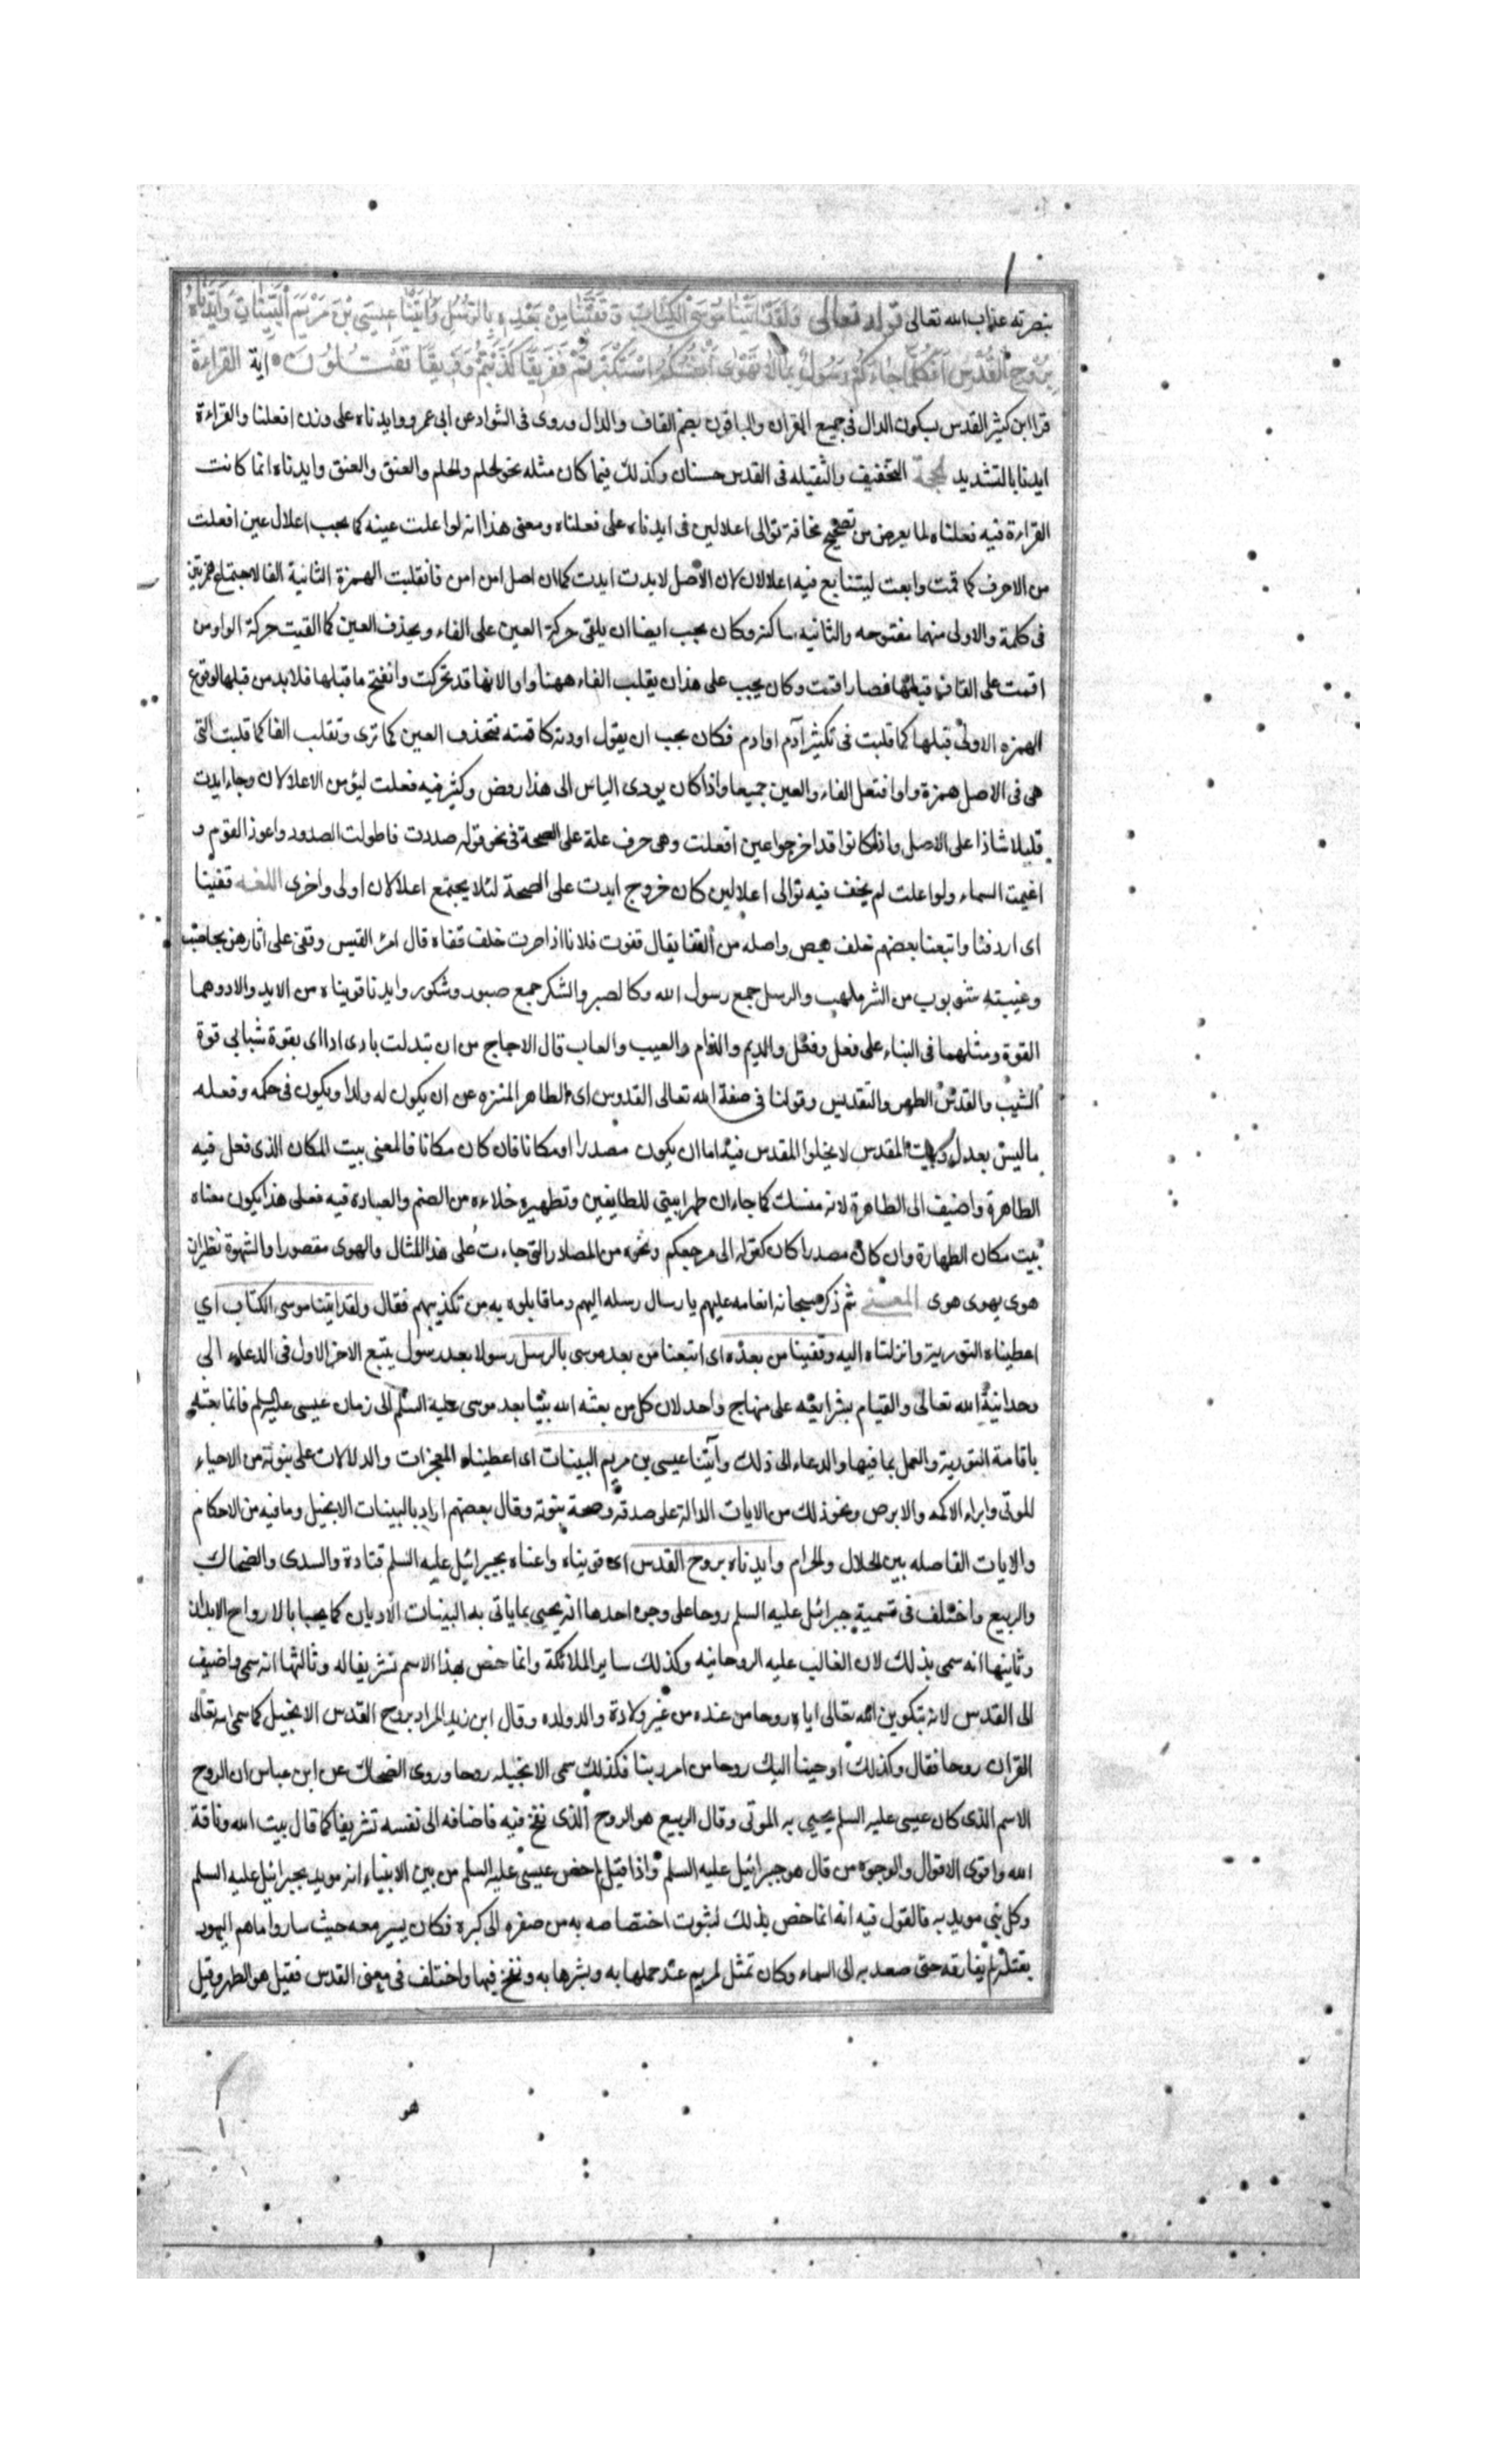 بنصرته عذاب الله تعالى قوله تعالى وَلَقَدْ اٰتَيْنَا مُوسَى الْكِتَابَ وَقَفَّيْنَا مِنْ بَعْدِهِ بِالرُّسُلِ وَاٰتَيْنَا عِيسَى بْنَ مَرْيَمَ الْبَيِّنَاتِ وَاَيَّدْنَاهُ
بِرُوحِ الْقُدُسِ اَفَكُلَّمَا جَاءَكُمْ رَسُولٌ بِمَا لَا تَهْوٰى اَنْفُسُكُمُ اسْتَكْبَرْتُمْ فَفَرِيقًا كَذَّبْتُمْ وَفَرِيقًا تَقْتُلُونَ اية القراءة
قرا ابن كثير القدس بسكون الدال فى جميع القران والباقون بضم القاف والدال وروى فى الشواد عن ابى عمرو وايدناه على وزن افعلنا والقراءة
ايدنا بالتشديد الحجة التخفيف والثقيله فى القدس حسنان وكذلك فيما كان مثله نحو الحلم والحلم والعنق والعنق وايدناه انما كانت
القراءة فيه فعلناه لما يعرض من تصحيح مخافة توالى اعلالين فى ايدناه على فعلناه ومعنى هذا انه لو اعلت عينه كما يجب اعلال عين افعلت
من الاحرف كما قمت وابعت ليتتابع فيه اعلالان لان الاصل لايدت ايدت كما ان اصل امن امن فانقلبت الهمزة الثانية الفا لاجتماع همزتين
فى كلمة والاولى منهما مفتوحه والثانيه ساكنه وكان يجب ايضا ان يلقى حركة العين على الفاء ويحذف العين كما القيت حركة الواو من
اقمت على القاف قبلها فصار اقمت وكان يجب على هذا ان يقلب الفاء ههنا واوا لانها قد تحركت وانفتح ما قبلها فلابد من قبلها لوقوع
الهمزه الاولى قبلها كما قلبت فى تكثير آدم اوادم فكان يجب ان يقول اودته كاقمته فتحذف العين كما ترى وتقلب الفا كما قلبت التى
هى فى الاصل همزة واوا فتعل الفاء والعين جميعا واذا كان يودى الياس الى هذا رفض وكثر فيه فعلت ليؤمن الاعلالان وجاء ايدت
قليلا شاذا على الاصل واذا كانوا قد اخرجوا عين افعلت وهى حرف علة على الصحة فى نحو قوله صددت فاطولت الصدود واعوز القوم و
اغيمت السماء ولو اعلت لم يخف فيه توالى اعلالين كان خروج ايدت على الصحة لئلا يجتمع اعلالان اولى واخرى اللغه قفينا
اى اردفنا واتبعنا بعضهم خلف بعض واصله من القفا يقال قفوت فلانا اذا صرت خلف قفاه قال امرؤ القيس وقفى على اثارهن بحاصب
وغيبته شؤبوب من الشر ملهب والرسل جمع رسول الله وكالصبر والشكر جمع صبور وشكور وايدنا قويناه من الايد والاد وهما
القوة ومثلهما فى البناء على فعل وفعل والديم والذام والعيب والعاب قال الاحجاج من ان تبدلت بادى ادا اى بقوة شبابى قوة
الشيب والقدس الطهر والتقديس وقولنا فى صفة الله تعالى القدوس اى الطاهر المنزه عن ان يكون له ولدا ويكون فى حكمه وفعله
ما ليس بعدل وبيت المقدس لا يخلوا المقدس فيه اما ان يكون مصدرا او مكانا فان كان مكانا فالمعنى بيت المكان الذى فعل فيه
الطاهرة واضيف الى الطاهرة لانه منسك كما جاء ان طهرا بيتى للطايفين وتطهيره خلاءه من الصنم والعباده فيه فعلى هذا يكون معناه
بيت مكان الطهارة وان كان مصدرا كان كقوله الى مرجعكم ونحوه من المصادر التى جاءت على هذا المثال والهوى مقصورا والشهوة نظيران
هوى يهوى هوى المعنى ثم ذكر سبحانه انعامه عليهم بارسال رسله اليهم وما قابلوه به من تكذيبهم فقال ولقد اتينا موسى الكتاب اي
اعطيناه التورية وانزلناه اليه وقفينا من بعده اى اتبعنا من بعد موسى بالرسل رسولا بعد رسول يتبع الاخر الاول فى الدعاء الى
وحدانية الله تعالى والقيام بشرايعه على منهاج واحد لان كل من بعثه الله نبيا بعد موسى عليه السلم الى زمان عيسى عليه السلم فانما بعثه
باقامة التورية والعمل بما فيها والدعاء الى ذلك وآتينا عيسى بن مريم البينات اى اعطيناه المعجزات والدلالات على نبوته من الاحياء
للموتى وابراء الاكمه والابرص ونحو ذلك من الايات الدالة على صدقه وصحة نبوته وقال بعضهم اراد بالبينات الانجيل وما فيه من الاحكام
والايات الفاصله بين الحلال والحرام وايدناه بروح القدس اى قويناه واعناه بجبرائيل عليه السلم قتادة والسدى والضحاك
والربيع واختلف فى تسمية جبرائيل عليه السلم روحا على وجوه احدها انه يحيى بما ياتى به البينات الاديان كما يحيا بالارواح الابدان
وثانيها انه سمى بذلك لان الغالب عليه الروحانيه وكذلك ساير الملائكة وانما خص بهذا الاسم تشريفا له وثالثها انه سمى واضيف
الى القدس لانه بتكوين الله تعالى اياه روحا من عنده من غير ولادة والد ولده وقال ابن زيد المراد بروح القدس الانجيل كما سمى الله تعالى
القران روحا فقال وكذلك اوحينا اليك روحا من امر بنا فكذلك سمى الانجيله روحا وروى الضحاك عن ابن عباس ان الروح
الاسم الذى كان عيسى عليه السلم يحيى به الموتى وقال الربيع هو الروح الذى نفخ فيه فاضافه الى نفسه تشريفا كما قال بيت الله وناقة
الله واقوى الاقوال والوجوه من قال هو جبرائيل عليه السلم واذا قيل لم خص عيسى عليه السلم من بين الانبياء انه مويد بجبرائيل عليه السلم
وكل نبى مويد به فالقول فيه انه انما خص بذلك لثبوت اختصاصه به من صغره الى كبره فكان يسير معه حيث سار واما هم اليهود
بقتله لم يفارقه حتى صعد به الى السماء وكان تمثل لمريم عند حملها به وبشرها به ونفخ فيها واختلف فى معنى القدس فقيل هو الطهر وقيل
هو